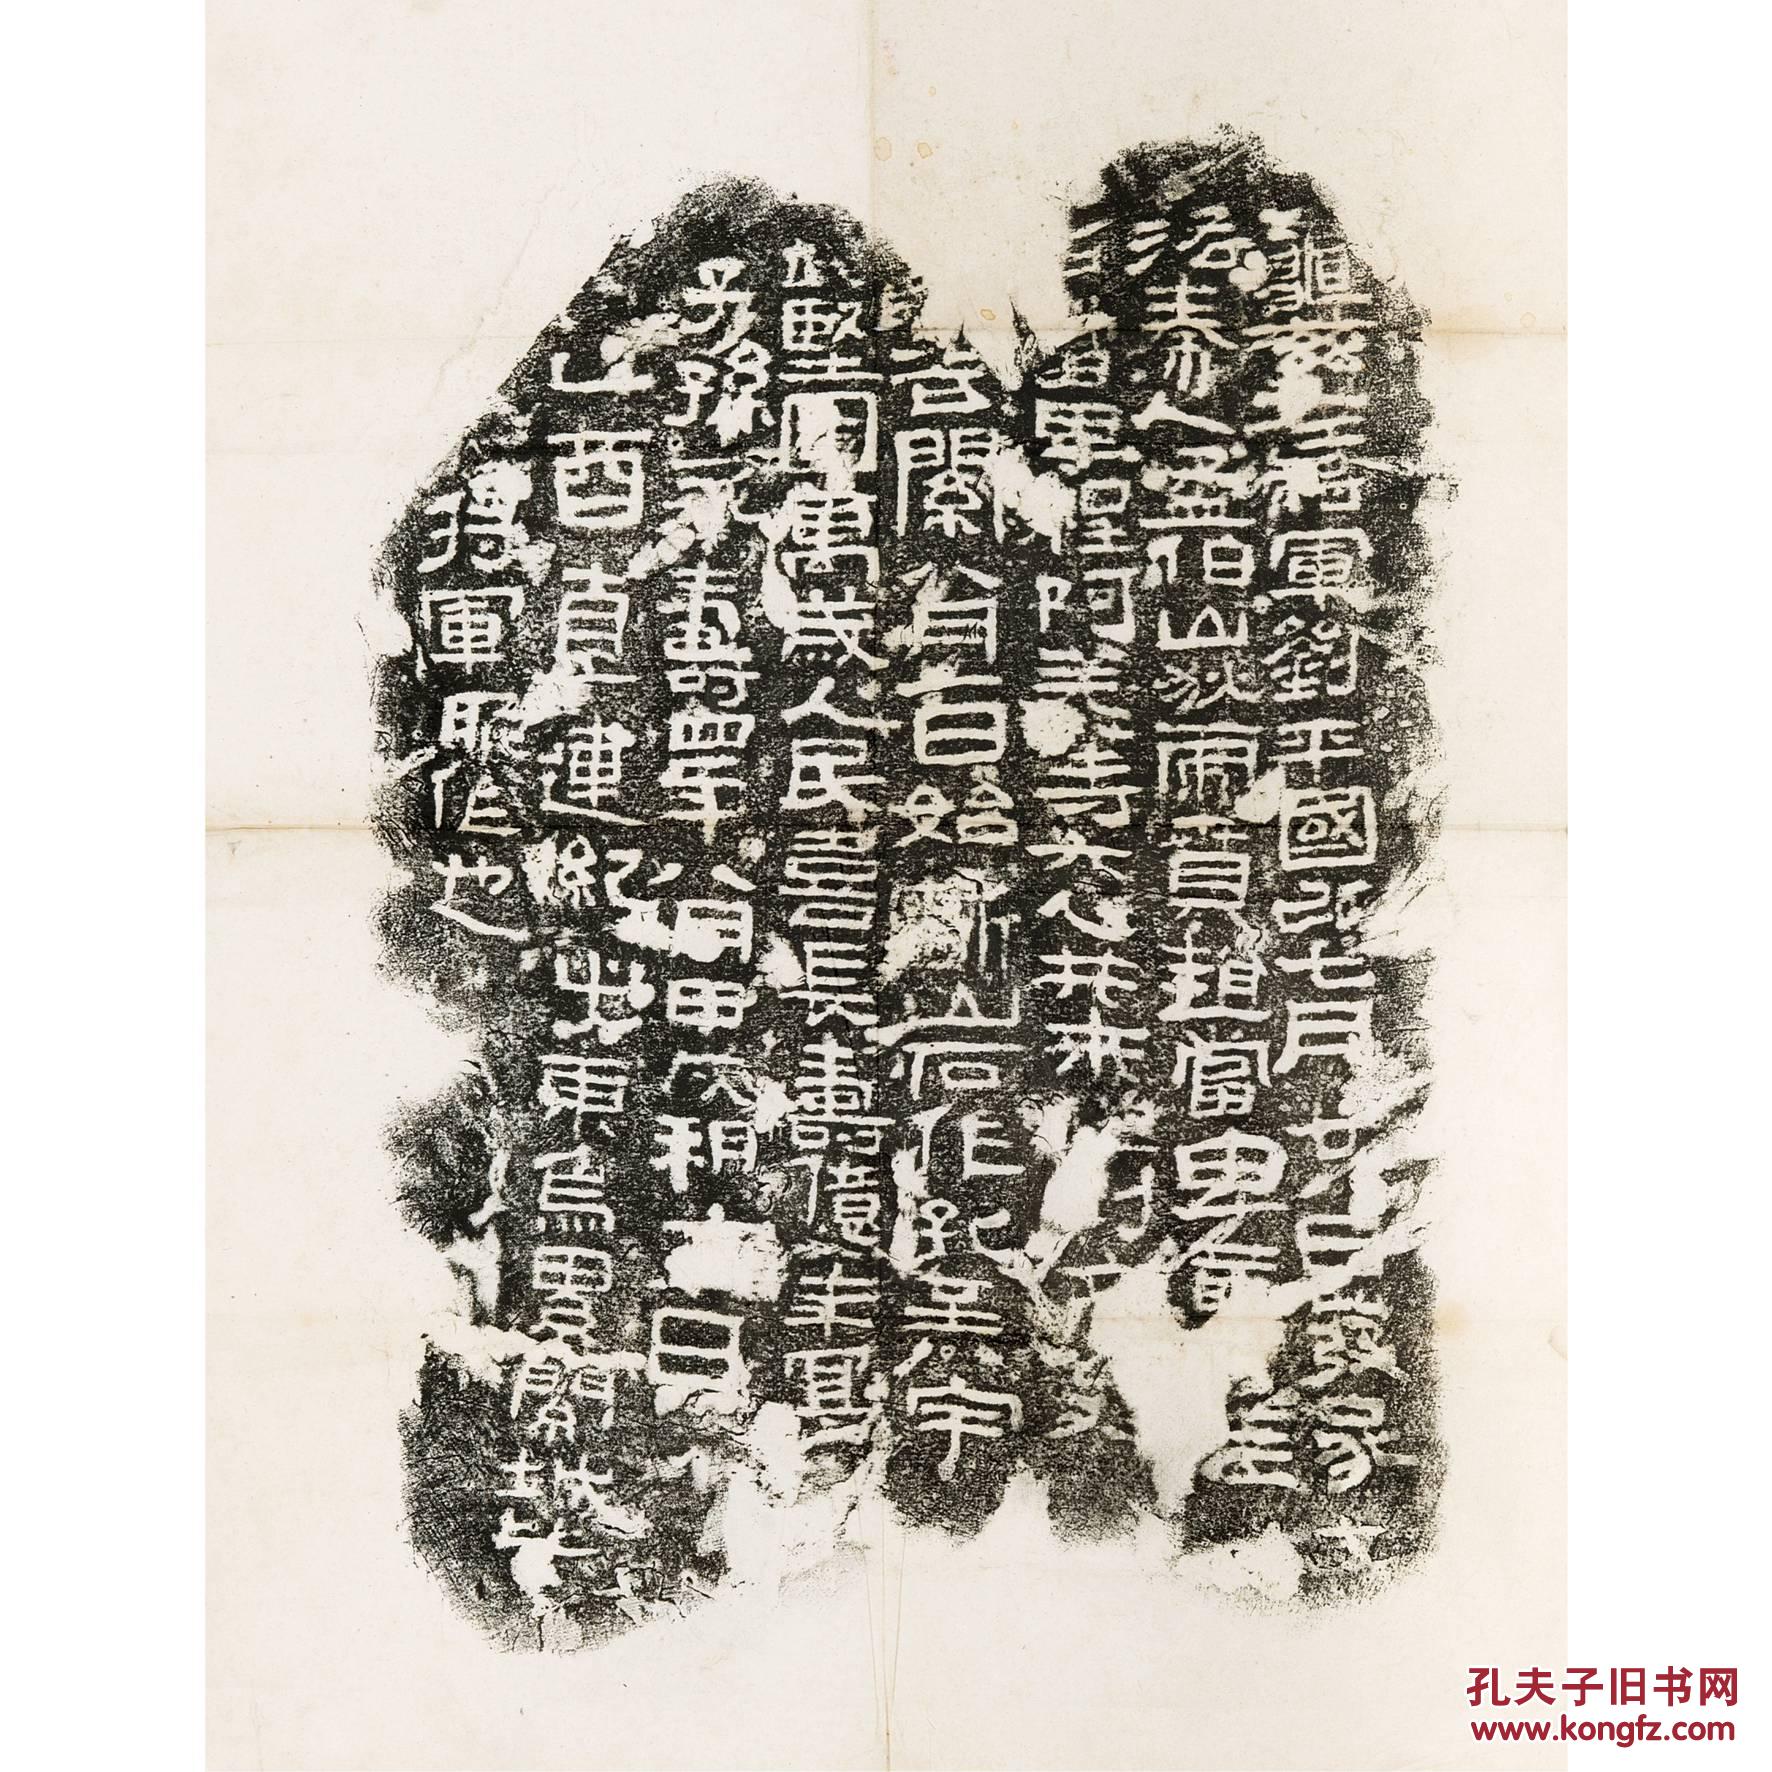 龜茲左將軍劉平國以七月廿日發家
秦人孟伯山狄虎賁趙當卑夏羌
當卑程阿羌等六人共來作
谷關八月一日始斷山石作孔至
堅固萬歲人民喜長壽億年宜
子孫永壽四年八月甲戌朔十二日
乙酉直建紀此東烏累關城皆
將軍所作也
孔夫子旧书网
www.kongfz.com